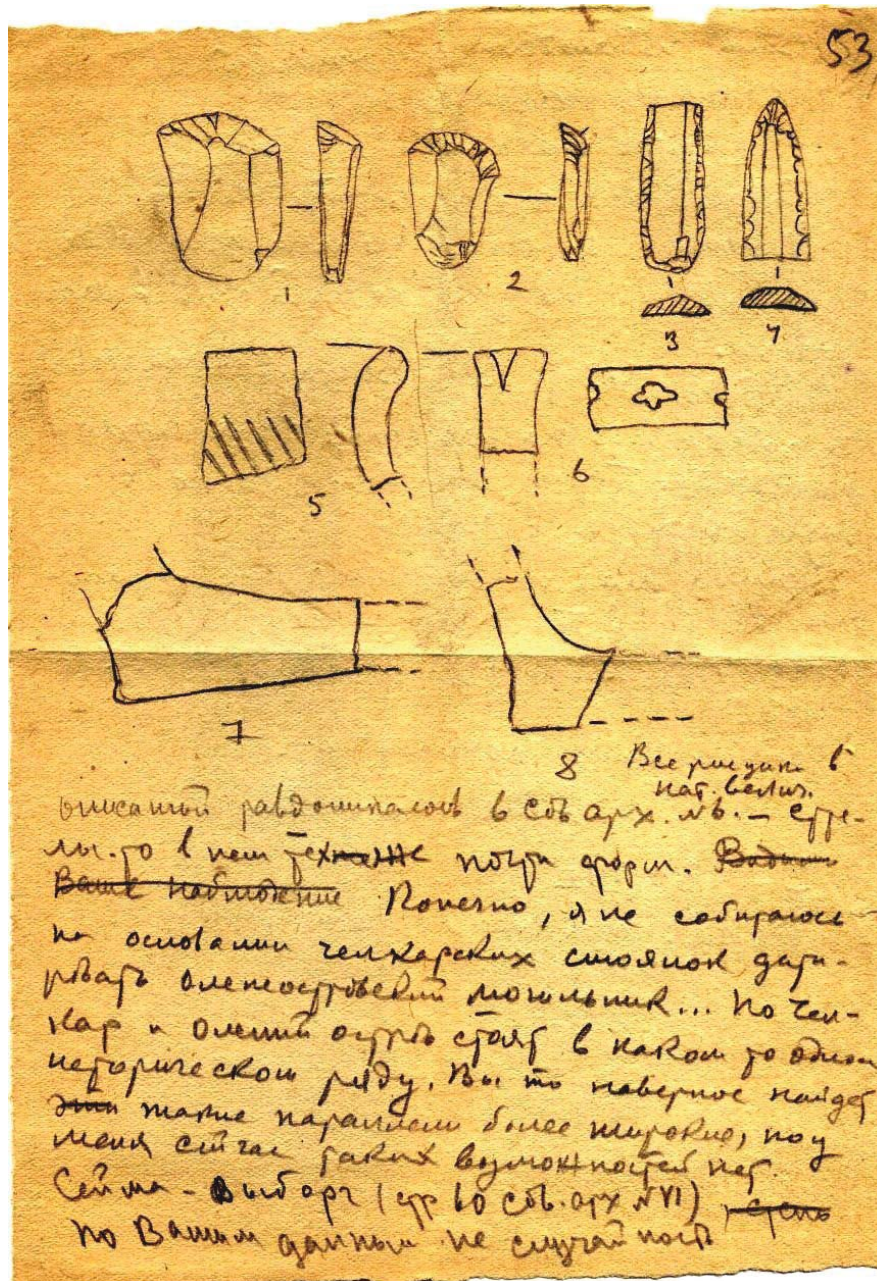 53
1
2
3
4
5
6
7
8
Все рисунки в
нат. велич.
описаний равдоникасом в Сов арх. №6. – стре-
лы. то в нем тех же почти форм.
Ваше наблюдение Конечно, я не собираюсь
на основании челкарских стоянок дати-
ровать оленеостровский могильник... Но Чел-
кар и олений остров стоят в каком то одном
историческом ряду. Вы то наверное найдет
эти такие параллели более широкие, но у
меня сейчас таких возможностей нет.
Сейма - Выборг (стр 60 сов. арх №VI)
по Вашим данным не случайность